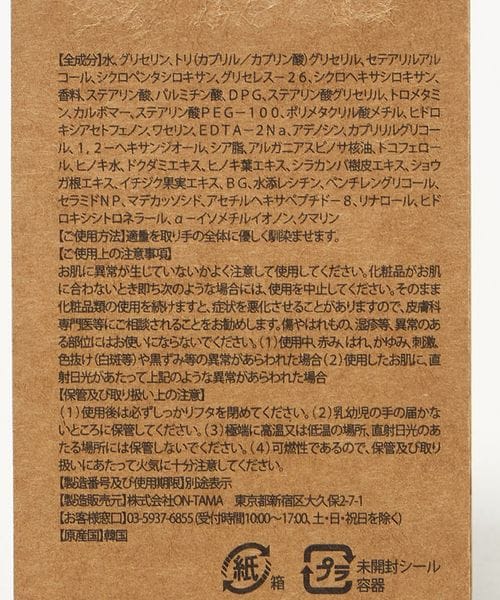 【全成分】水、グリセリン、トリ(カプリル／カプリン酸)グリセリル、セテアリルアル
コール、シクロペンタシロキサン、グリセレス－２６、シクロヘキサシロキサン、
香料、ステアリン酸、パルミチン酸、ＤＰＧ、ステアリン酸グリセリル、トロメタミ
ン、カルボマー、ステアリン酸ＰＥＧ－１００、ポリメタクリル酸メチル、ヒドロ
キシアセトフェノン、ワセリン、ＥＤＴＡ－２Ｎａ、アデノシン、カプリリルグリコー
ル、１，２－ヘキサンジオール、シア脂、アルガニアスピノサ核油、トコフェロー
ル、ヒノキ水、ドクダミエキス、ヒノキ葉エキス、シラカンバ樹皮エキス、ショウ
ガ根エキス、イチジク果実エキス、ＢＧ、水添レシチン、ペンチレングリコール、
セラミドＮＰ、マデカッソシド、アセチルヘキサペプチド－８、リナロール、ヒド
ロキシシトロネラール、α－イソメチルイオノン、クマリン
【ご使用方法】適量を取り手の全体に優しく馴染ませます。
【ご使用上の注意事項】
お肌に異常が生じていないかよく注意して使用してください。化粧品がお肌
に合わないとき即ち次のような場合には、使用を中止してください。そのまま
化粧品類の使用を続けますと、症状を悪化させることがありますので、皮膚科
専門医等にご相談されることをお勧めします。傷やはれもの、湿疹等、異常のあ
る部位にはお使いにならないでください。（１）使用中、赤み、はれ、かゆみ、刺激、
色抜け(白斑等)や黒ずみ等の異常があらわれた場合（２）使用したお肌に、直
射日光があたって上記のような異常があらわれた場合
【保管及び取り扱い上の注意】
（１）使用後は必ずしっかりフタを閉めてください。（２）乳幼児の手の届かな
いところに保管してください。（３）極端に高温又は低温の場所、直射日光のあ
たる場所には保管しないでください。（４）可燃性であるので、保管及び取り
扱いにあたって火気に十分注意してください。
【製造番号及び使用期限】別途表示
【製造販売元】株式会社ON-TAMA　東京都新宿区大久保2-7-1
【お客様窓口】03-5937-6855（受付時間10:00～17:00、土・日・祝日を除く）
【原産国】韓国
紙 箱 プラ 未開封シール
容器